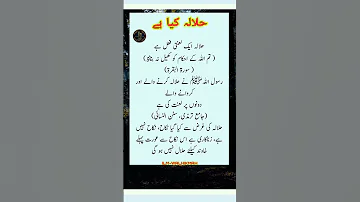 حلالہ کیا ہے
حلالہ ایک لعنتی فعل ہے
( تم اللہ کے احکام کو کھیل نہ بناؤ )
( سورة البقرة )
رسول اللہ ﷺ نے حلالہ کرنے والے اور
کروانے والے
دونوں پر لعنت کی ہے
(جامع ترمذی، سنن النسائی)
حلالہ کی غرض سے کیا گیا نکاح، نکاح نہیں
ہے، زناکاری ہے اس نکاح سے عورت پہلے
خاوند کیلئے حلال نہیں ہو گی